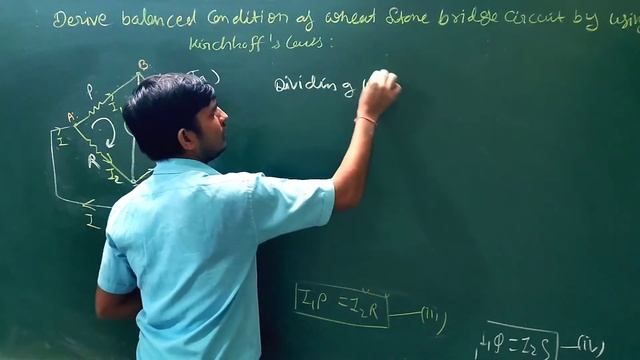 Derive balanced Condition of wheat Stone bridge Circuit by using
Kirchhoff's Laws :
B
P
I₁
A
I
R
I₂
I
Dividing
I₁P = I₂R (iii)
I₁Q = I₂S (iv)